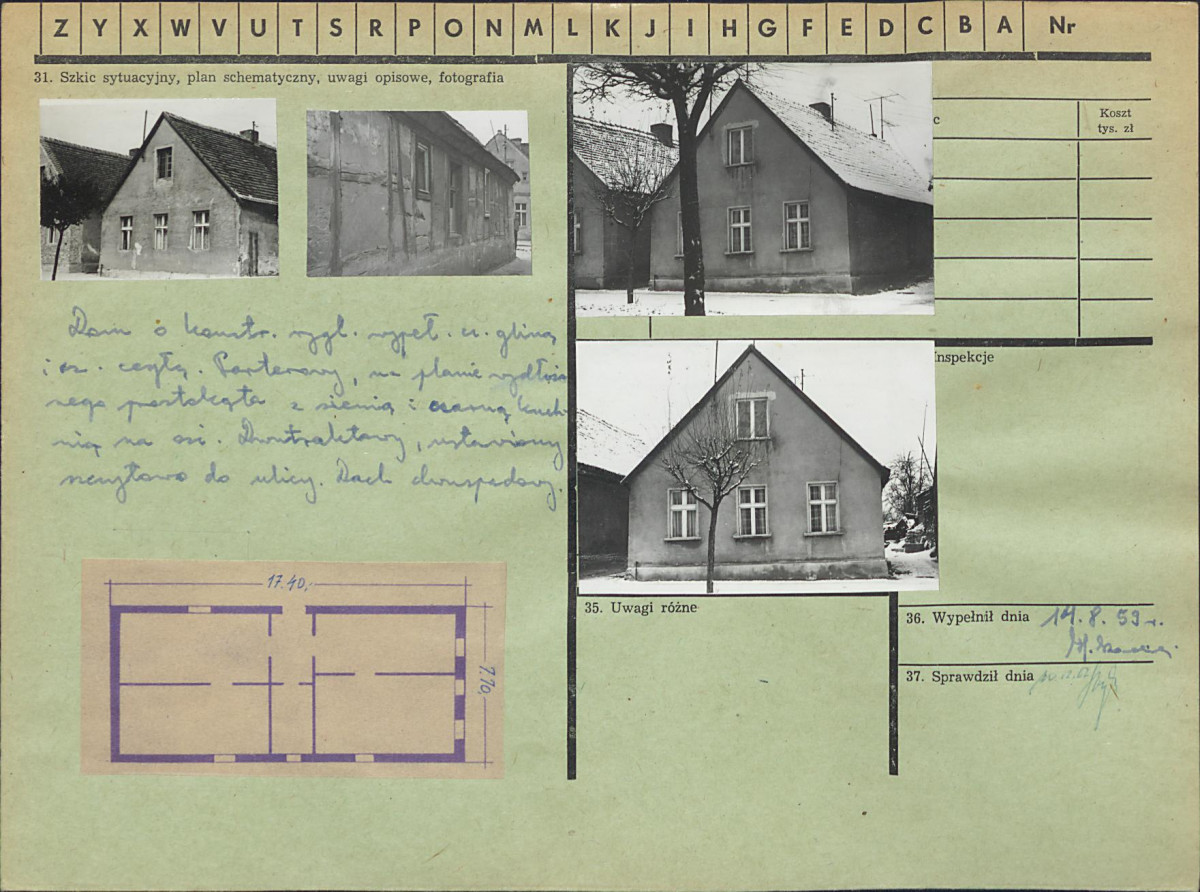 Z Y X W V U T S R P O N M L K J I H G F E D C B A Nr
31. Szkic sytuacyjny, plan schematyczny, uwagi opisowe, fotografia
Koszt
tys. zł
Inspekcje
Dom o konstr. rygl. wypeł. cz. gliną
i cz. cegłą. Parterowy, na planie wydłużo
nego prostokąta z sienią i czarną kuch-
nią na osi. Dwutraktowy, ustawiony
szczytowo do ulicy. Dach dwuspadowy.
17.40,-
7.70,-
35. Uwagi różne
36. Wypełnił dnia 14.8.59 r.
37. Sprawdził dnia